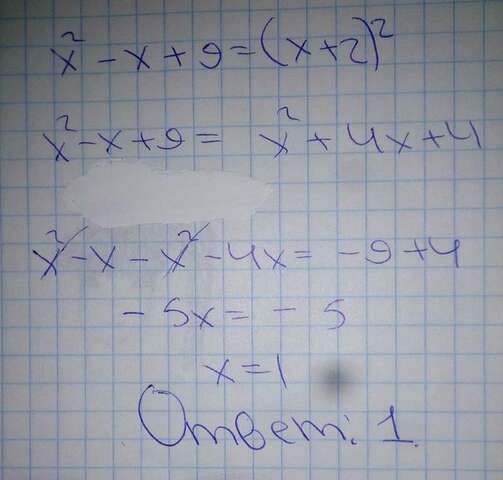 x² - x + 9 = (x+2)²
x² - x + 9 = x² + 4x + 4
x² - x - x² - 4x = -9 + 4
- 5x = - 5
x = 1
Ответ: 1.